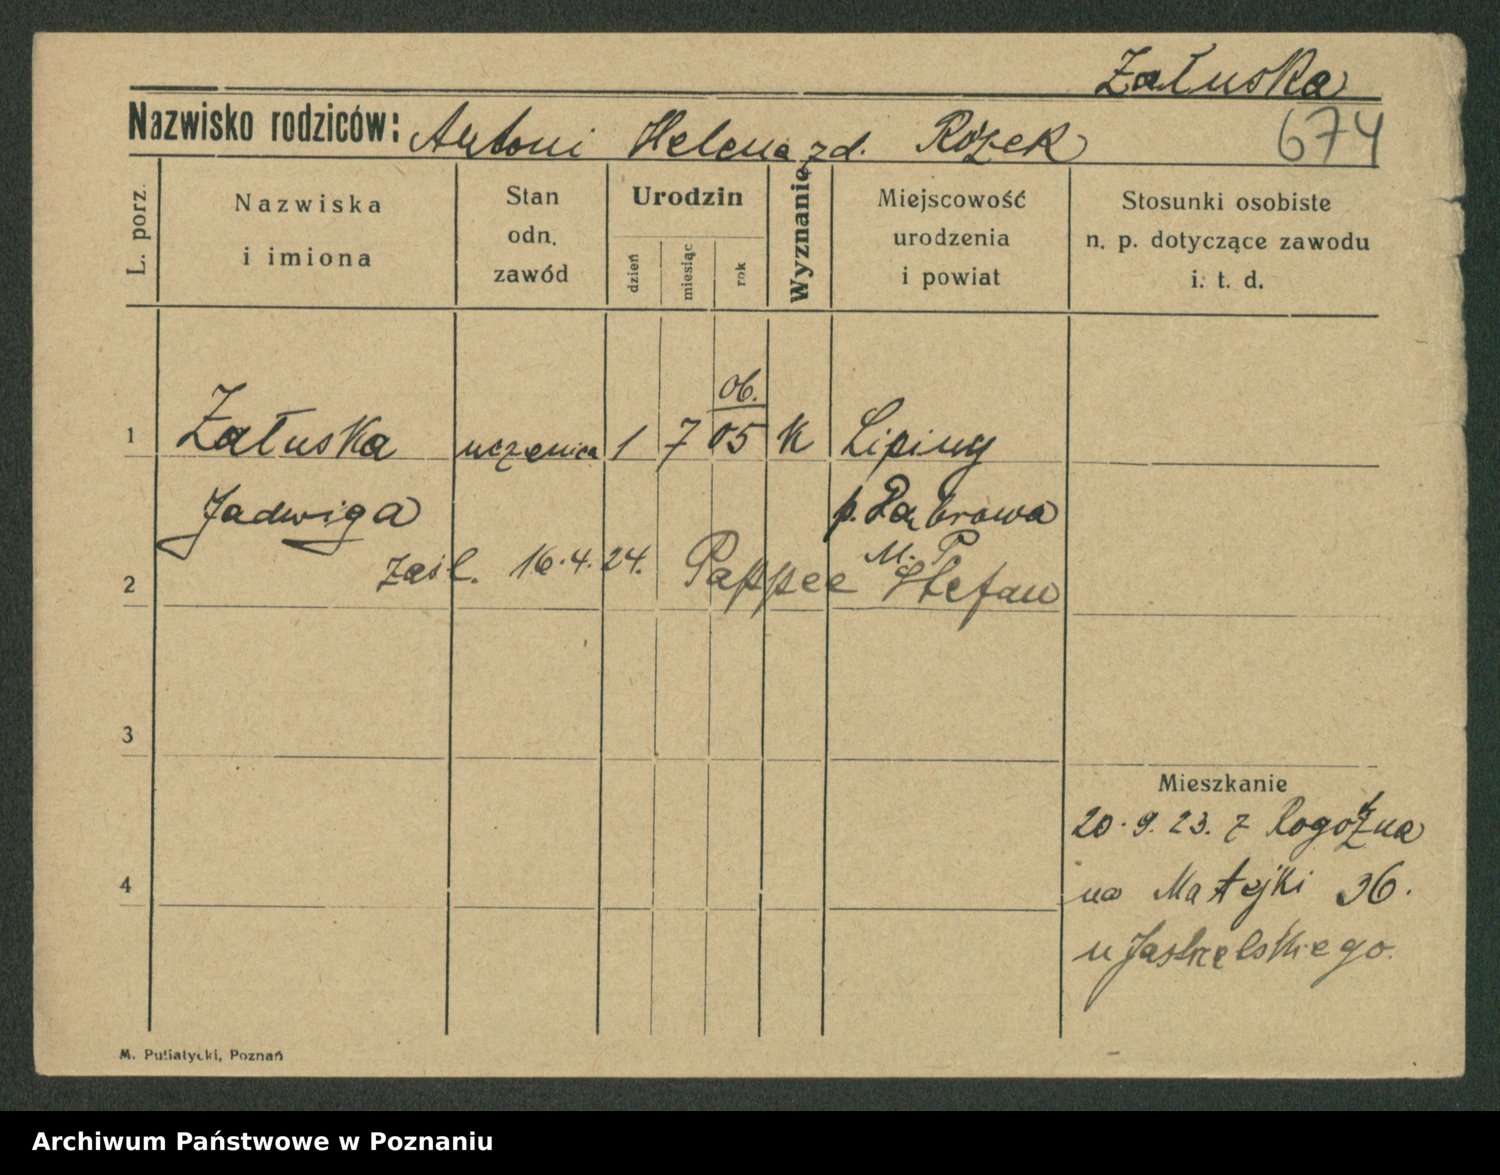 Załuska
Nazwisko rodziców: Antoni Helena zd. Rożek
674
L. porz.
Nazwiska
i imiona
Stan
odn.
zawód
Urodzin
dzień
miesiąc
rok
Wyznanie
Miejscowość
urodzenia
i powiat
Stosunki osobiste
n. p. dotyczące zawodu
i. t. d.
ob.
1 Załuska uczenica 1 7 05 K Lipiny
Jadwiga p. Dąbrowa
M. P.
2 zaśl. 16.4.24. Pappee Stefan
3
Mieszkanie
20.9.23. z Rogoźna
4
na Matejki 36.
u
M. Putiatycki, Poznań
Archiwum Państwowe w Poznaniu